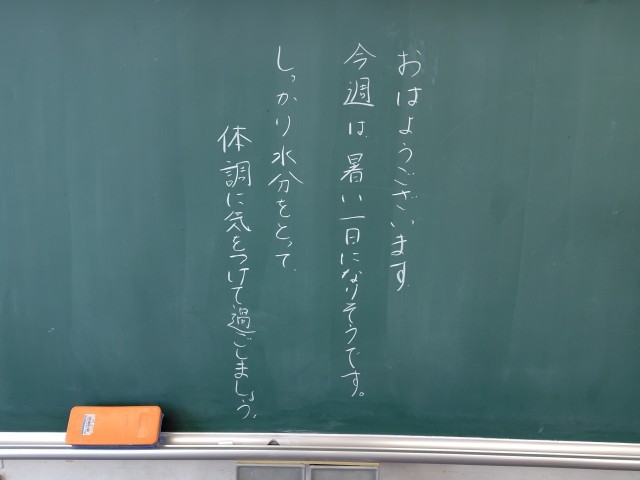 おはようございます
今週は、暑い一日になりそうです。
しっかり水分をとって、
体調に気をつけて過ごしましょう。